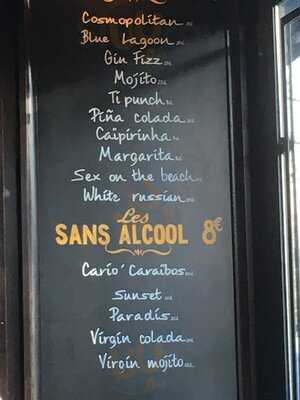 Cosmopolitan
Blue Lagoon
Gin Fizz
Mojito
Ti punch
Piña colada
Caïpirinha
Margarita
Sex on the beach
White russian
Les
SANS ALCOOL 8€
Cario' Caraïbos
Sunset
Paradis
Virgin colada
Virgin mojito